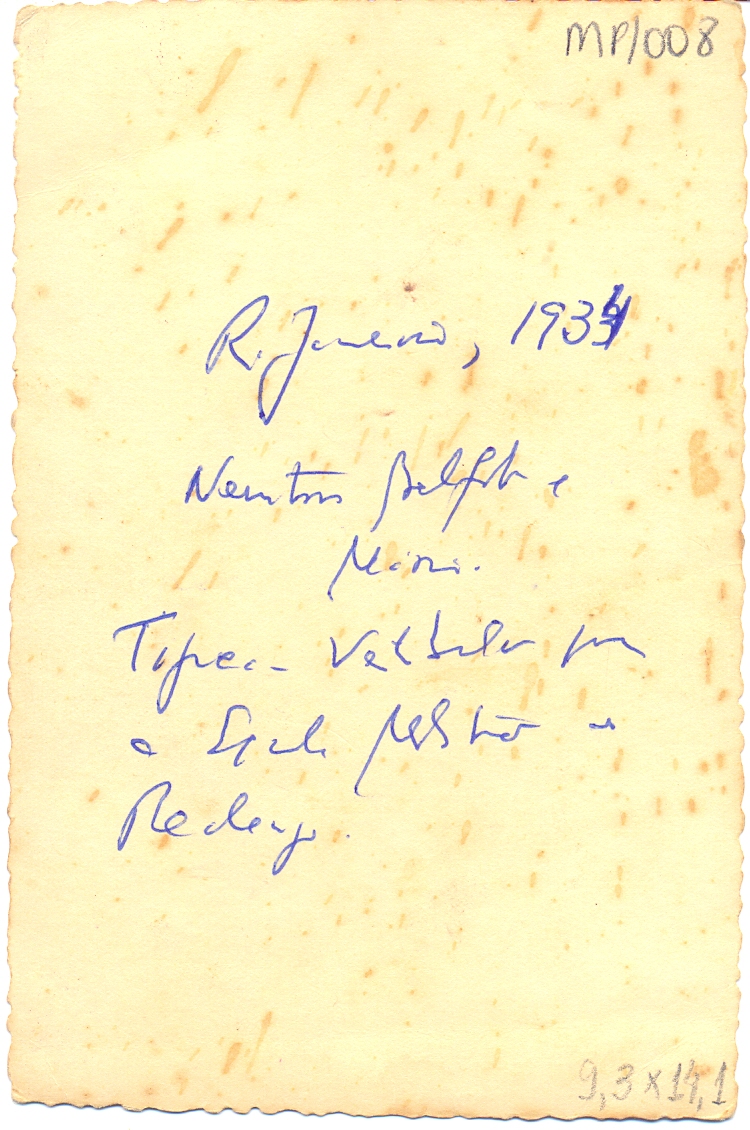 MP/008
R. Janeiro, 1934
Newton Belfort e
Mário.
Vestibular para
a Escola Militar do
Realengo.
9,3 x 14,1